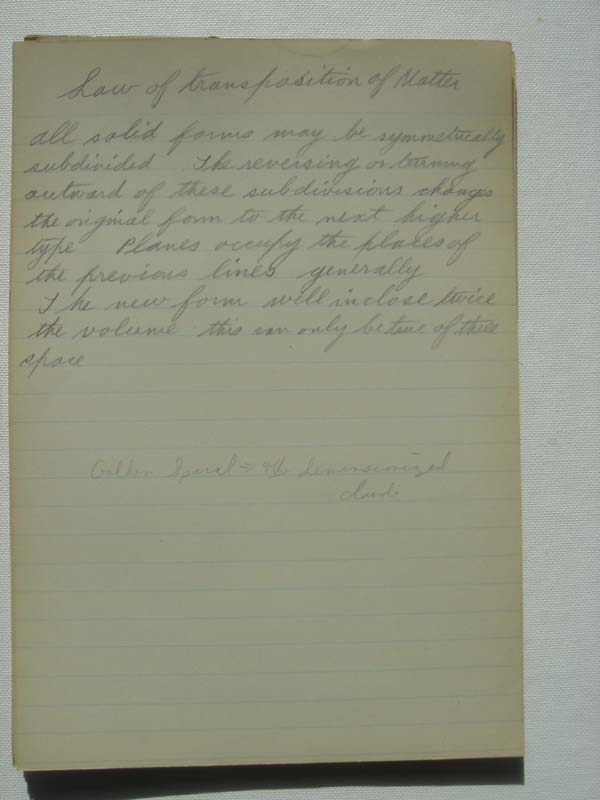 Law of transposition of Matter
all solid forms may be symmetrically
subdivided The reversing or turning
outward of these subdivisions changes
the original form to the next higher
type Planes occupy the places of
the previous lines generally
The new form will inclose twice
the volume this can only be true of three
space
Golden Spiral → 4th dimensionized